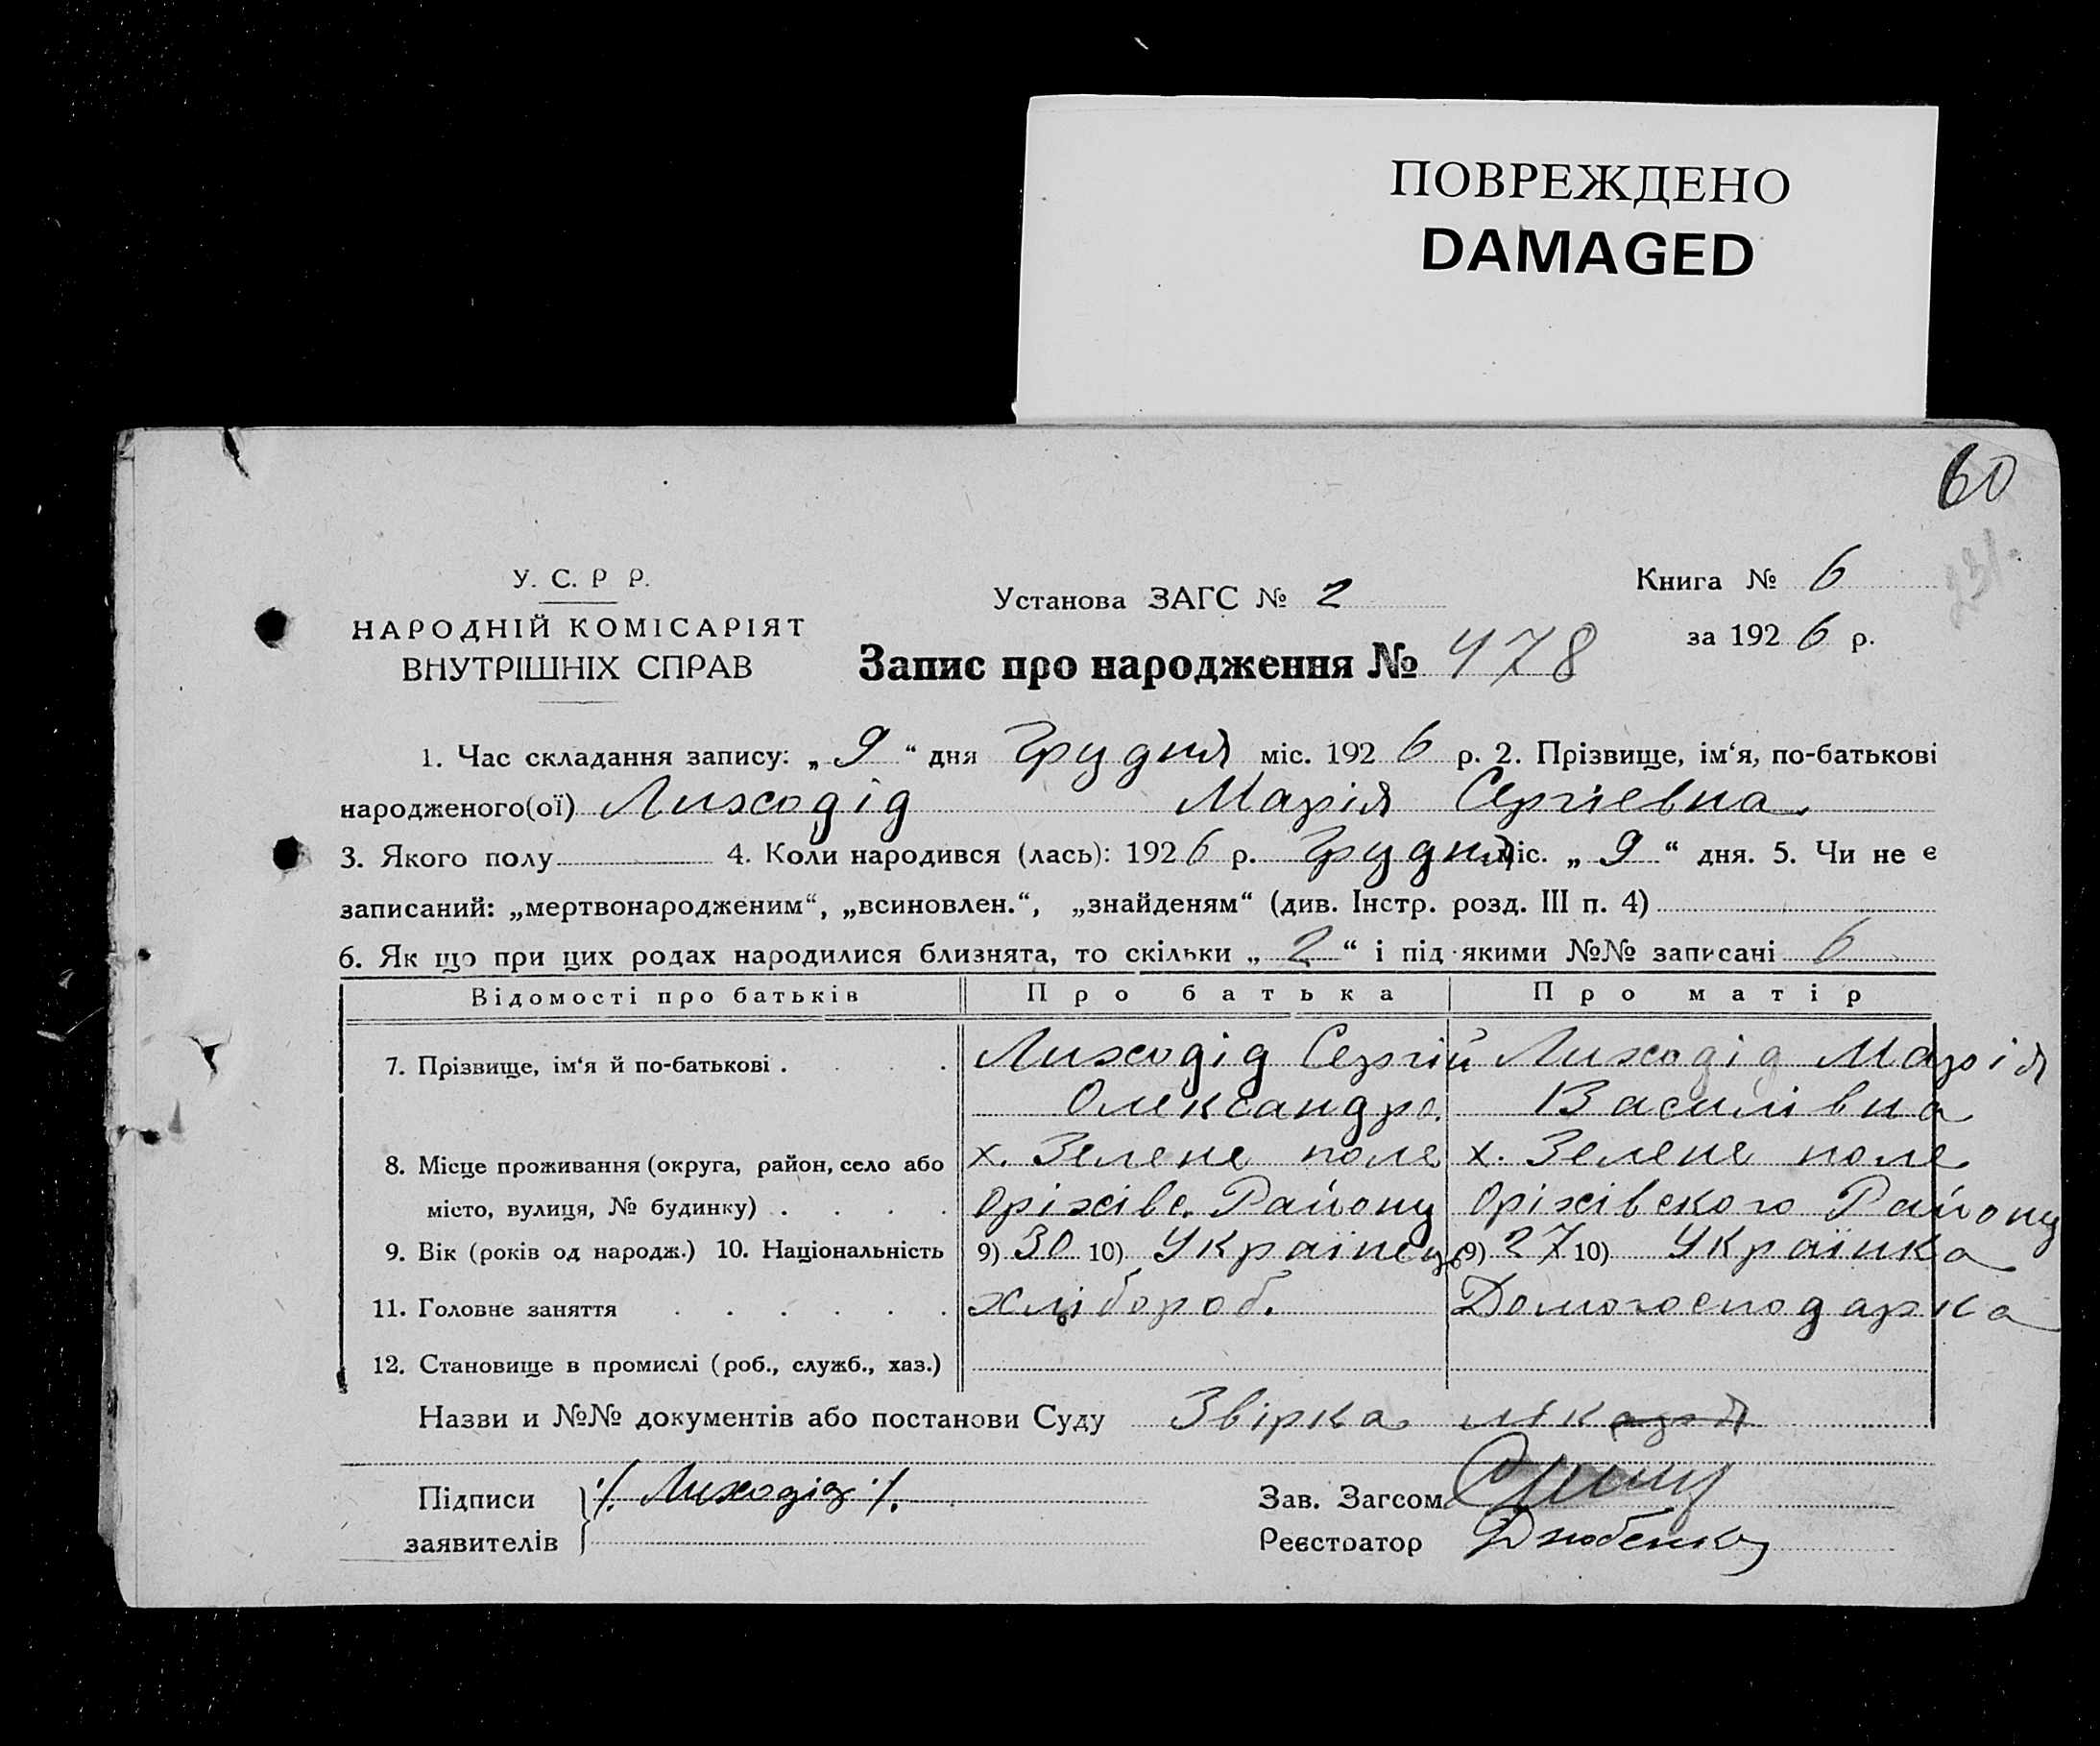 ПОВРЕЖДЕНО
DAMAGED
60
231.
У. С. Р Р.
НАРОДНІЙ КОМІСАРІЯТ
ВНУТРІШНІХ СПРАВ
Установа ЗАГС № 2
Книга № 6
за 1926 р.
Запис про народження № 478
1. Час складання запису: „ 9 “ дня Грудня міс. 1926 р. 2. Прізвище, ім‘я, по-батькові
народженого(ої) Лиходід Марія Сергіевна
3. Якого полу 4. Коли народився (лась): 1926 р. Грудня міс. „ 9 “ дня. 5. Чи не є
записаний: „мертвонародженим“, „всиновлен.“, „знайденям“ (див. Інстр. розд. III п. 4)
6. Як що при цих родах народилися близнята, то скільки „ 2 “ і під якими №№ записані 6
Відомості про батьків Про батька Про матір
7. Прізвище, ім‘я й по-батькові . . . . Лиходід Сергій Лиходід Марія
Олександро. Василівна
8. Місце проживання (округа, район, село або х. Зелене поле х. Зелене поле
місто, вулиця, № будинку) . . . . Оріхівс. Району Оріхівского Району
9. Вік (років од народж.) 10. Національність 9) 30 10) Українець 9) 27 10) Українка
11. Головне заняття . . . . . . Хлібороб. Домогосподарка
12. Становище в промислі (роб., служб., хаз.)
Назви и №№ документів або постанови Суду Звірка
Підписи ./. Лиходід ./. Зав. Загсом
заявителів Реєстратор Дзюбенко